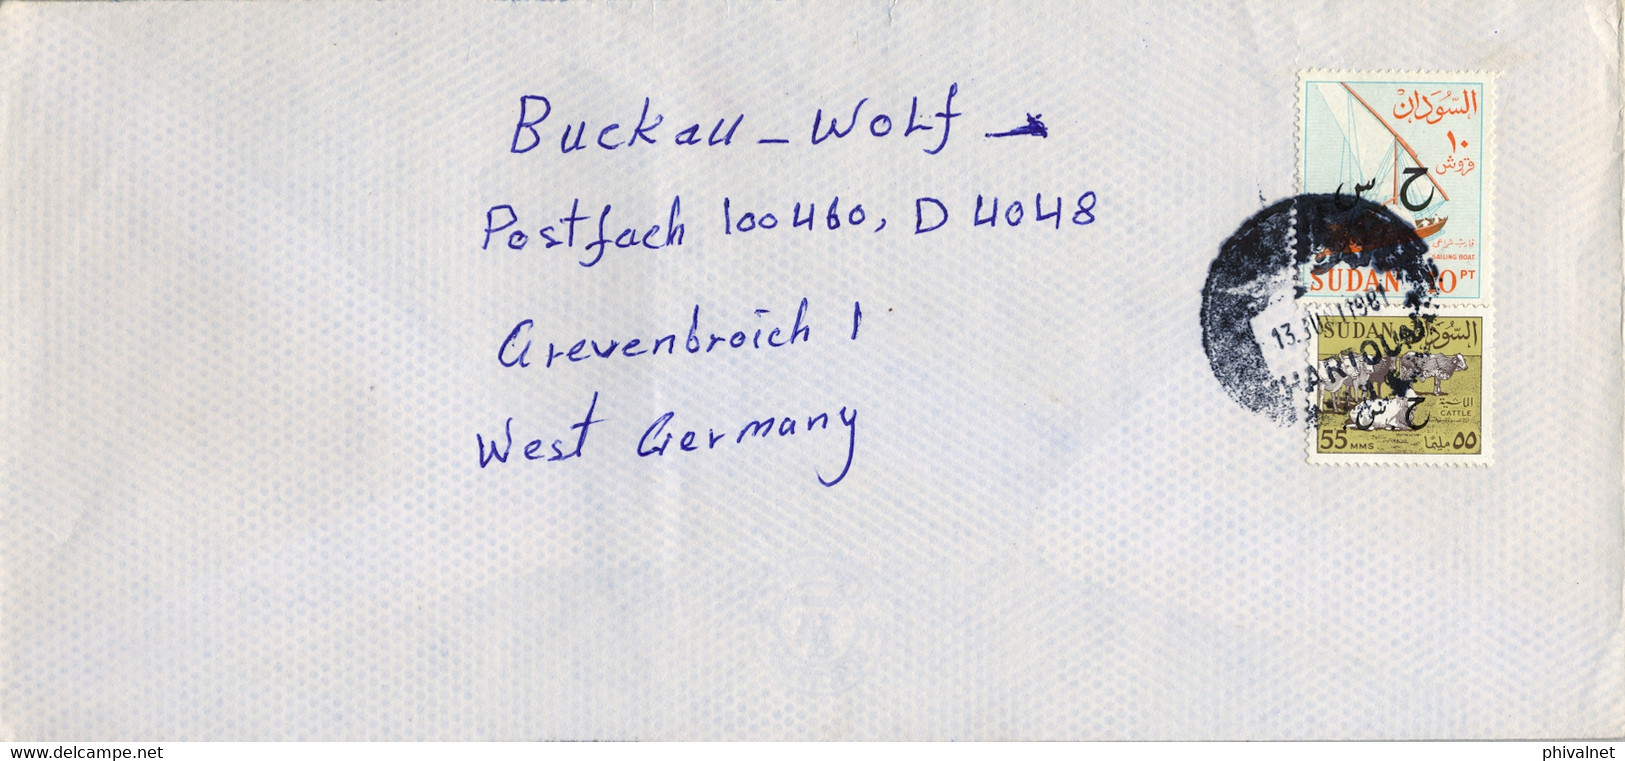 Buckau - Wolf -
Postfach 100460, D 4048
Grevenbroich 1
West Germany
السودان
١٠
قروش
ح س
قارب شراعي
SAILING BOAT
SUDAN 10 PT
1981
SUDAN السودان
الماشية
CATTLE
ح س
55 MMS ٥٥ مليما
www.delcampe.net
phivalnet